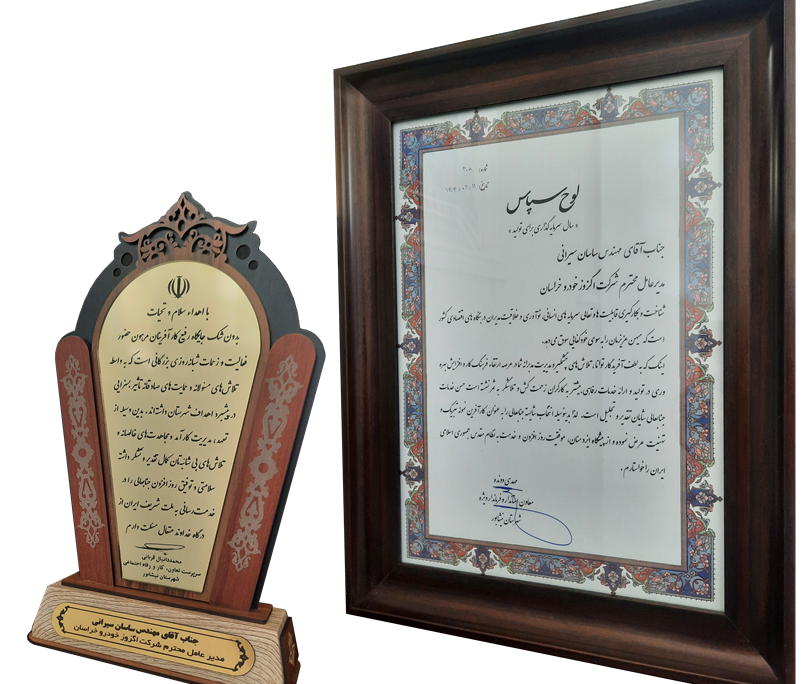 با اهداء سلام و تحیات
بدون شک جایگاه رفیع کارآفرینان مرهون حضور
فعالیت و زحمات شبانه روزی بزرگانی است که به واسطه
تلاش‌های مسئولانه و حمایت‌های صادقانه تأثیر بسزایی
در پیشبرد اهداف شهرستان داشته‌اند، بدین وسیله از
تعهد، مدیریت کارآمد و مجاهدت‌های خالصانه و
تلاش‌های بی شائبه‌تان کمال تقدیر و تشکر داشته
سلامتی و توفیق روز افزون جنابعالی را در
خدمت رسانی به ملت شریف ایران از
درگاه خداوند متعال مسئلت دارم
محمددانیال قربانی
سرپرست تعاون، کار و رفاه اجتماعی
شهرستان نیشابور
جناب آقای مهندس ساسان سیرانی
مدیر عامل محترم شرکت اگزوز خودرو خراسان
شماره: ۳۰۸
تاریخ:
لوح سپاس
« سال سرمایه گذاری برای تولید »
جناب آقای مهندس ساسان سیرانی
مدیرعامل محترم شرکت اگزوز خودرو خراسان
شناخت و بکارگیری قابلیت‌ها و تعالی سرمایه های انسانی، نوآوری و خلاقیت مدیران در بنگاه های اقتصادی کشور
است که میهن عزیزمان را به سوی خودکفایی سوق می‌دهد.
اینک که به لطف آفریدگار توانا، تلاش‌های چشمگیر و مدیریت مدبرانه شما در عرصه ارتقاء فرهنگ کار و افزایش بهره
وری در تولید و ارائه خدمات رفاهی بیشتر به کارگران زحمت کش و تلاشگر به ثمر نشسته است حسن خدمات
جنابعالی شایان تقدیر و تجلیل است. لذا بدینوسیله انتخاب شایسته جنابعالی را به عنوان کارآفرین نمونه تبریک و
تهنیت عرض نموده و از پیشگاه ایزد منان، موفقیت روز افزون و خدمت به نظام مقدس جمهوری اسلامی
ایران را خواستارم.
مهدی دونده
معاون استاندار و فرماندار ویژه
شهرستان نیشابور